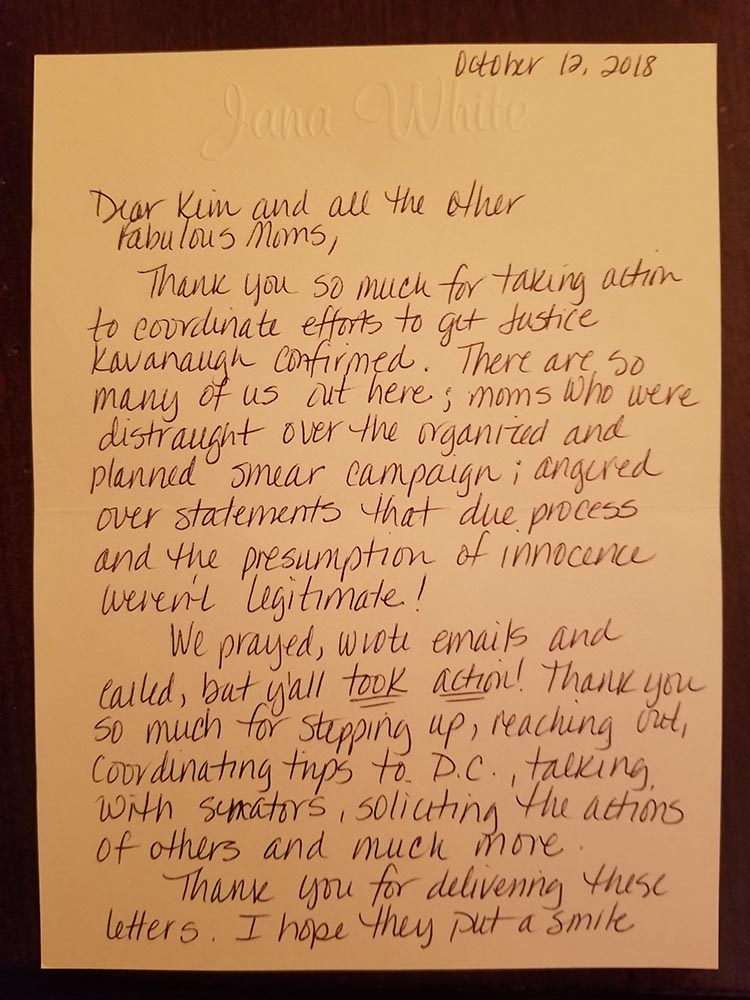 October 12, 2018
Jana White
Dear Kim and all the other
Fabulous Moms,
Thank you so much for taking action
to coordinate efforts to get Justice
Kavanaugh confirmed. There are so
many of us out here; moms who were
distraught over the organized and
planned smear campaign; angered
over statements that due process
and the presumption of innocence
weren't legitimate!
We prayed, wrote emails and
called, but y'all took action! Thank you
so much for stepping up, reaching out,
coordinating trips to D.C., talking
with senators, soliciting the actions
of others and much more.
Thank you for delivering these
letters. I hope they put a smile